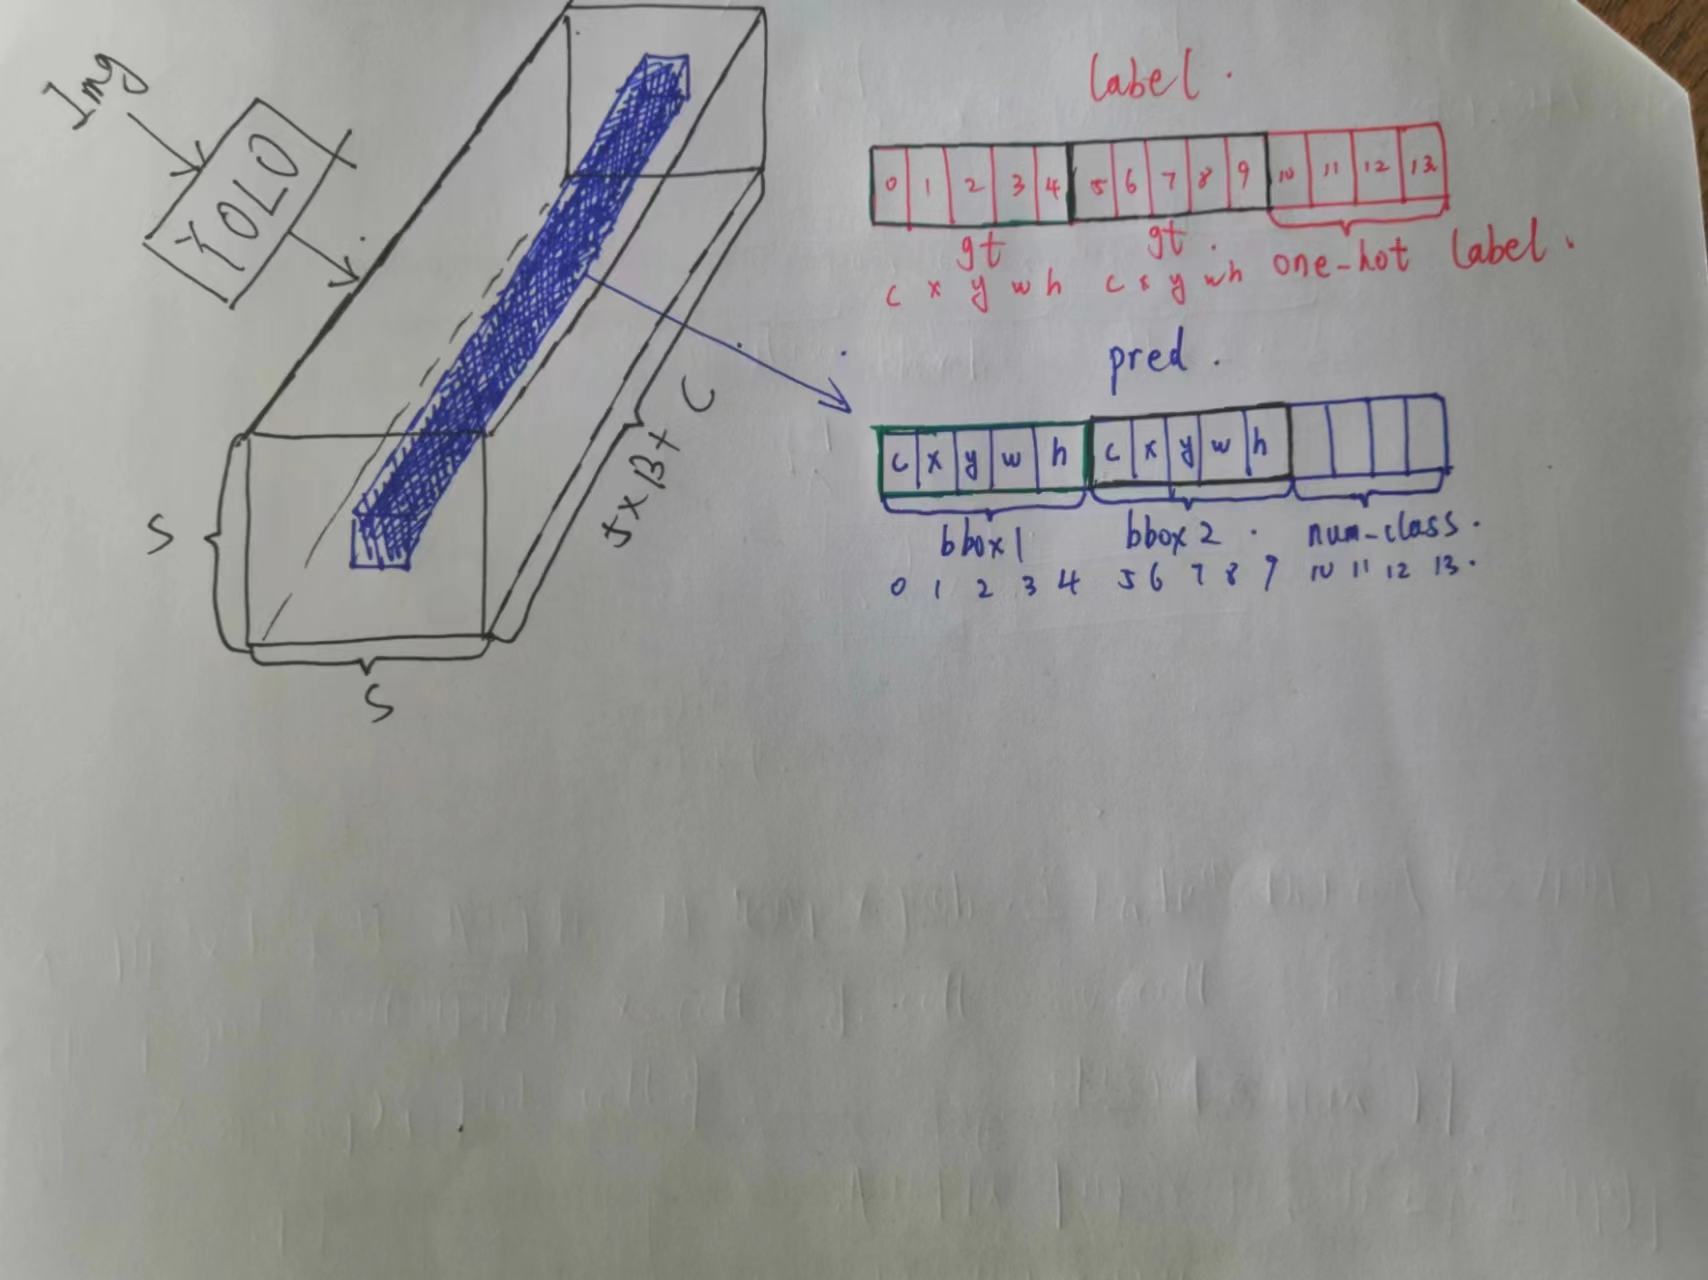 Img
YOLO
S
S
5 x B + C
label.
0 1 2 3 4 5 6 7 8 9 10 11 12 13
gt gt.
c x y w h c x y w h one-hot label.
pred.
c x y w h c x y w h
bbox1 bbox2. num-class.
0 1 2 3 4 5 6 7 8 9 10 11 12 13.